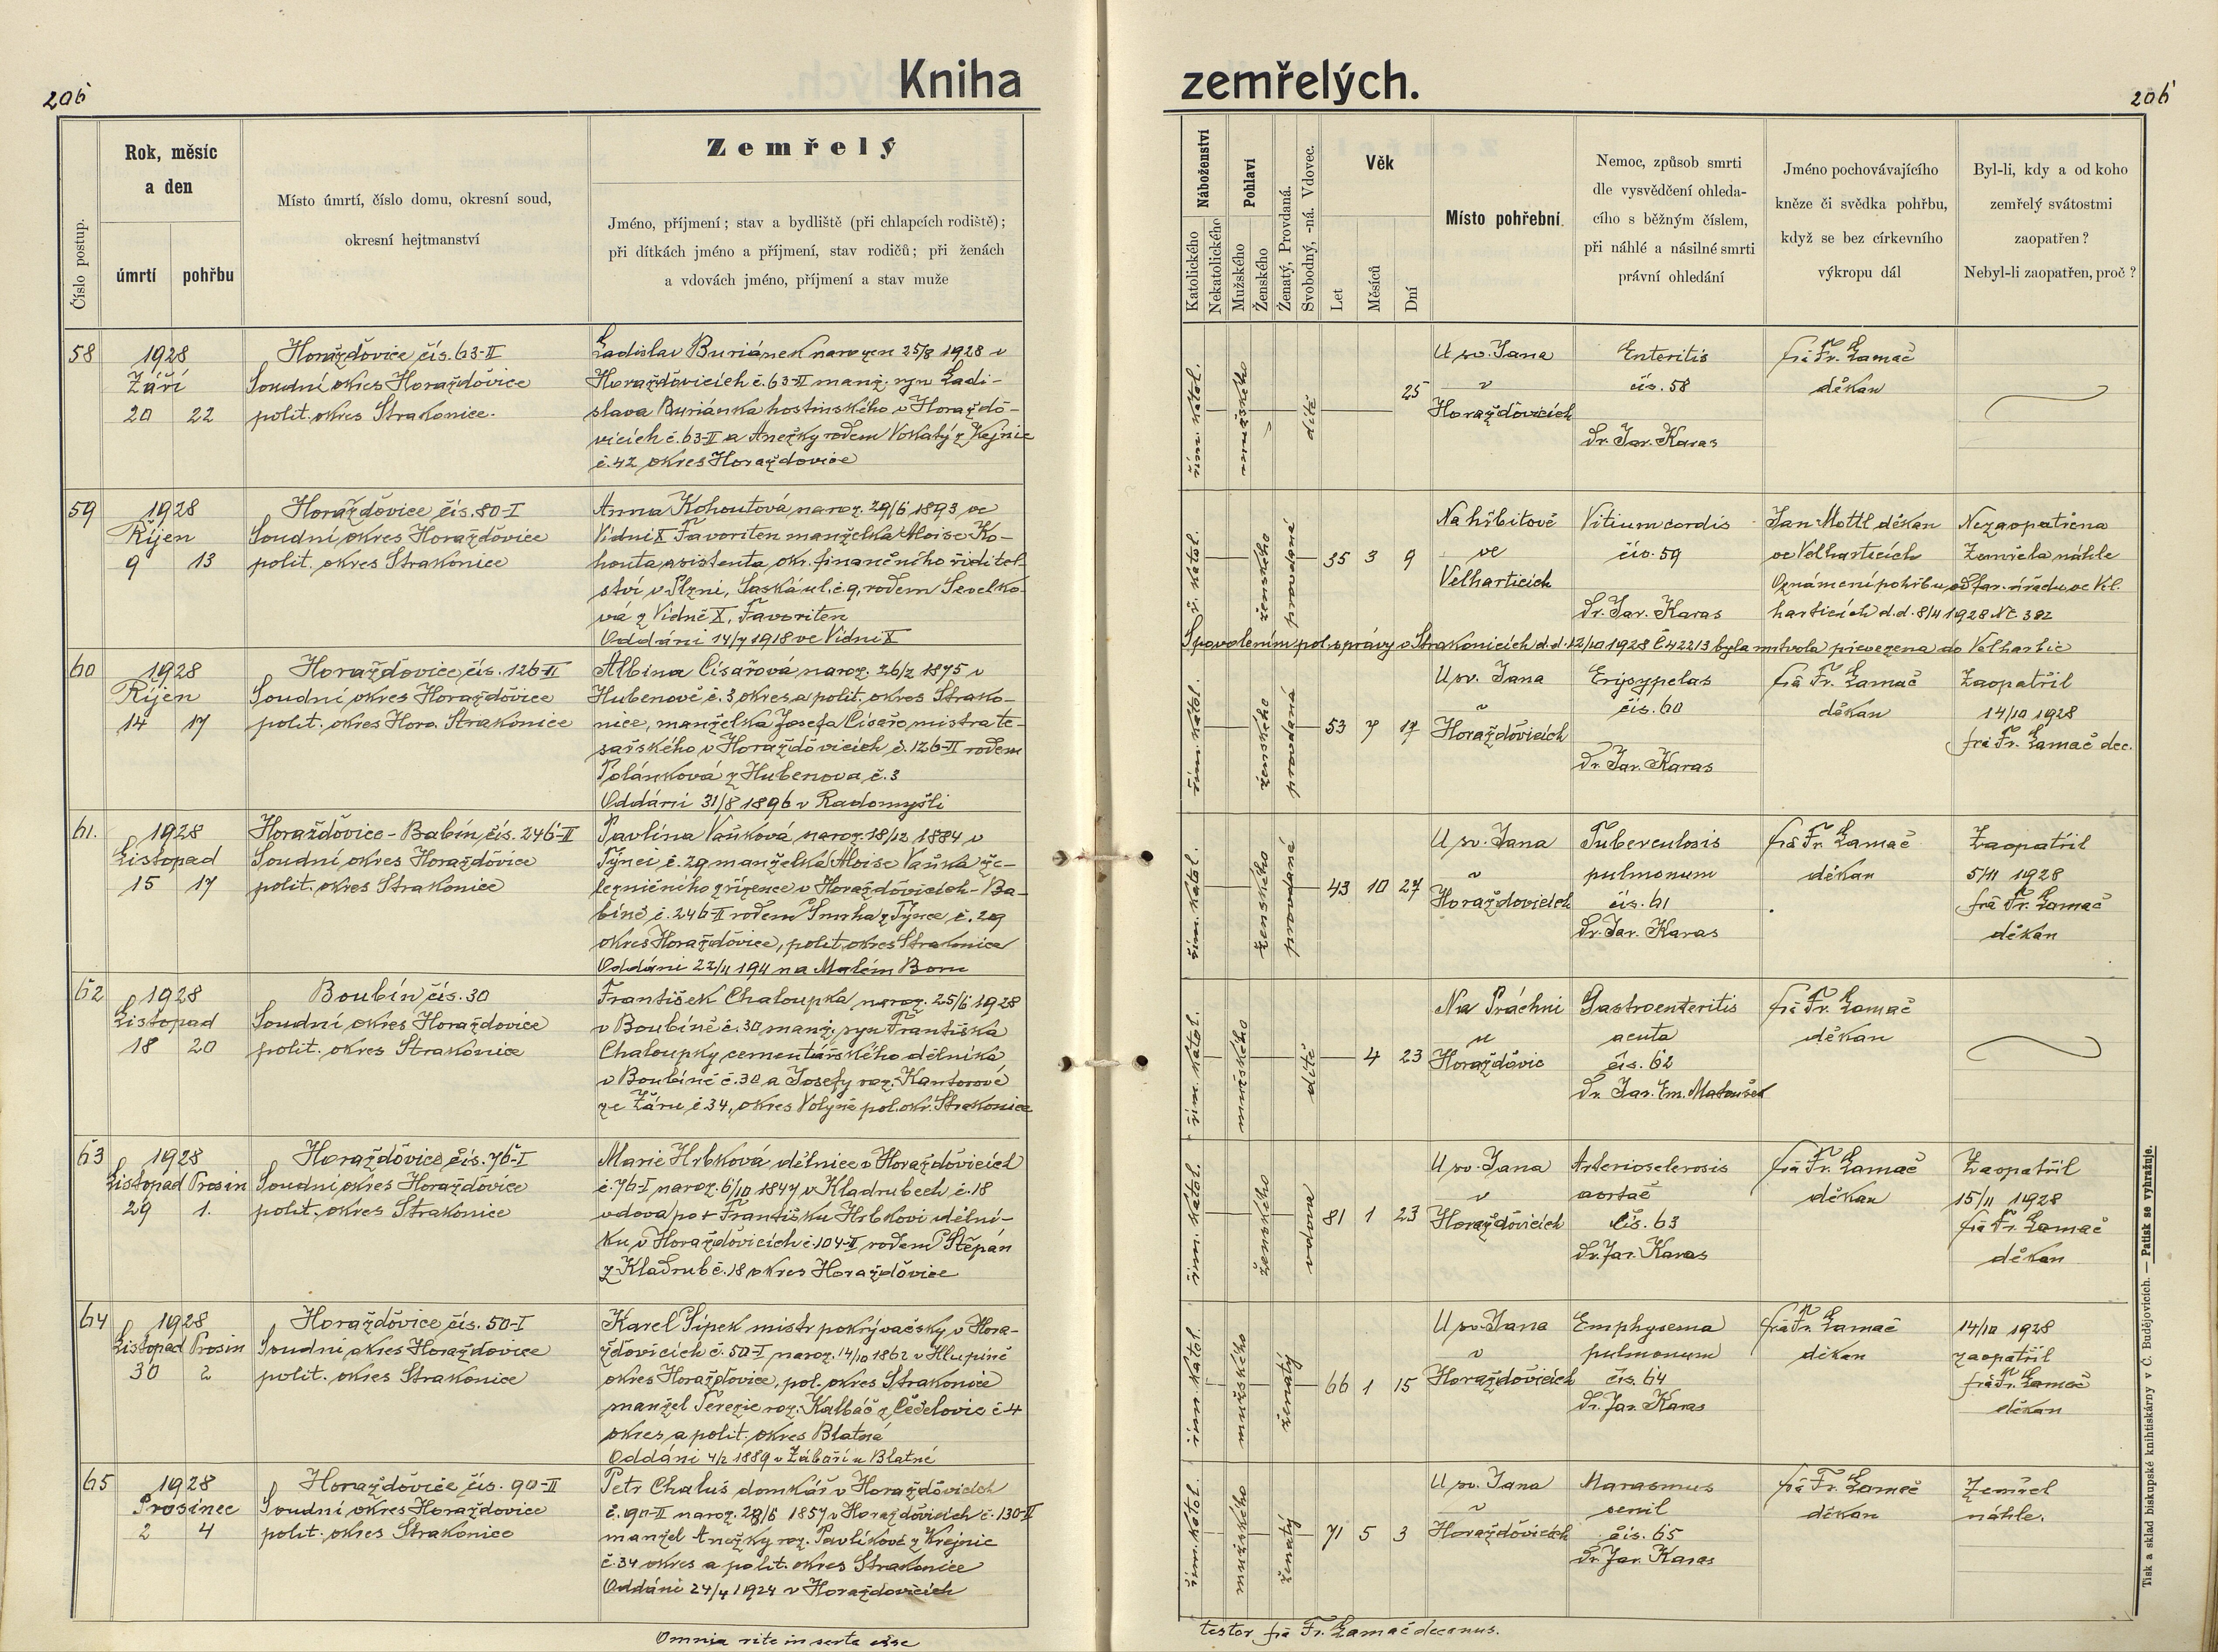 206
Kniha
Číslo postup.
Rok, měsíc
a den
úmrtí
pohřbu
Místo úmrtí, číslo domu, okresní soud,
okresní hejtmanství
Zemřelý
Jméno, příjmení; stav a bydliště (při chlapcích rodiště);
při dítkách jméno a příjmení, stav rodičů; při ženách
a vdovách jméno, příjmení a stav muže
58
1928
Září
20 22
Horažďovice čís. 63-II
Soudní okres Horažďovice
polit. okres Strakonice.
Ladislav Buriánek narozen 25/8 1928 v
Horažďovicích č. 63-II manž. syn Ladi-
slava Buriánka hostinského v Horažďo-
vicích č. 63-II a Anežky rodem Vokatý z Kejnic
č. 42 okres Horažďovice
59
1928
Říjen
9 13
Horažďovice čís. 80-I
Soudní okres Horažďovice
polit. okres Strakonice
Anna Kohoutová naroz. 29/6 1893 ve
Vídni X Favoriten manželka Aloise Ko-
houta asistenta okr. finančního ředitel-
ství v Plzni, Saská ul. č. 9, rodem
vá z Vídně X, Favoriten
Oddáni 14/7 1918 ve Vídni X
60
1928
Říjen
14 17
Horažďovice čís. 126-II
Soudní okres Horažďovice
polit. okres Hora. Strakonice
Albina Císařová naroz. 26/2 1875 v
Hubenově č. 3 okres a polit. okres Strako-
nice, manželka Josefa Císaře mistra te-
sařského v Horažďovicích č. 126-II rodem
Polánková z Hubenova č. 3
Oddáni 31/8 1896 v Radomyšli
61.
1928
Listopad
15 17
Horažďovice - Babín čís. 246-II
Soudní okres Horažďovice
polit. okres Strakonice
Pavlína Vaňková naroz. 18/12 1884 v
Týnci č. 29 manželka Aloise Vaňka že-
lezničního zřízence v Horažďovicích - Ba-
bíně č. 246-II rodem Smrha z Týnce č. 29
okres Horažďovice, polit. okres Strakonice
Oddáni 22/11 1911 na Malém Boru
62
1928
Listopad
18 20
Boubín čís. 30
Soudní okres Horažďovice
polit. okres Strakonice
František Chaloupka naroz. 25/6 1928
v Boubíně č. 30 manž. syn Františka
Chaloupky cementářského dělníka
v Boubíně č. 30 a Josefy roz. Kantorové
ze Žáru č 34, okres Volyně pol. okr. Strakonice
63
1928
Listopad Prosin
29 1.
Horažďovice čís. 76-I
Soudní okres Horažďovice
polit. okres Strakonice
Marie Hrbková dělnice v Horažďovicích
č. 76-I naroz. 6/10 1847 v Kladrubech č. 18
vdova po + Františku Hrbkovi dělní-
ku v Horažďovicích č. 104-II rodem Štěpán
z Kladrub č. 18 okres Horažďovice
64
1928
Listopad Prosin
30 2
Horažďovice čís. 50-I
Soudní okres Horažďovice
polit. okres Strakonice
Karel Šípek mistr pokrývačský v Hora-
žďovicích č. 50-I naroz. 14/10 1862 v Hlupíně
okres Horažďovice, pol. okres Strakonice
manžel Terezie roz. Kalbáč z Čečelovic č 4
okres a polit. okres Blatná
Oddáni 4/2 1889 v Záboří u Blatné
65
1928
Prosinec
2 4
Horažďovice čís. 90-II
Soudní okres Horažďovice
polit. okres Strakonice
Petr Chaluš domkář v Horažďovicích
č. 90-II naroz. 29/6 1857 v Horažďovicích č. 130-II
manžel Anežky roz. Pavlíkové z Krejnic
č. 34 okres a polit. okres Strakonice
Oddáni 24/4 1924 v Horažďovicích
Omnia rite inserta esse
zemřelých.
206
Náboženství
Katolického
Nekatolického
Pohlaví
Mužského
Ženského
Ženatý, Provdaná.
Svobodný, -ná. Vdovec.
Věk
Let
Měsíců
Dní
Místo pohřební.
Nemoc, způsob smrti
dle vysvědčení ohleda-
cího s běžným číslem,
při náhlé a násilné smrti
právní ohledání
Jméno pochovávajícího
kněze či svědka pohřbu,
když se bez církevního
výkropu dál
Byl-li, kdy a od koho
zemřelý svátostmi
zaopatřen?
Nebyl-li zaopatřen, proč?
řím. katol.
mužského
dítě
25
U sv. Jana
v
Horažďovicích
Enteritis
čís. 58
Dr. Jar. Karas
frá Fr. Lamač
děkan
ř. katol.
ženského
provdané
35 3 9
Na hřbitově
ve
Velharticích
Vitium cordis
čís. 59
Dr. Jar. Karas
Jan Mottl děkan
ve Velharticích
Nezaopatřena
Zemřela náhle
Oznámení pohřbu od far. úřadu ve Vel.
harticích d.d. 8/11 1928 Nč 382
S povolením pol. správy v Strakonicích d.d. 12/10 1928 Č 42213 byla mrtvola převezena do Velhartic
řím. katol.
ženského
provdaná
53 7 17
U sv. Jana
v
Horažďovicích
Erysypelas
čís. 60
Dr. Jar. Karas
frá Fr. Lamač
děkan
Zaopatřil
14/10 1928
frá Fr. Lamač dec.
řím. katol.
ženského
provdané
43 10 27
U sv. Jana
v
Horažďovicích
Tuberculosis
pulmonum
čís. 61
Dr. Jar. Karas
frá Fr. Lamač
děkan
Zaopatřil
5/11 1928
frá Fr. Lamač
děkan
řím. katol.
mužského
dítě
4 23
Na Práchni
u
Horažďovic
Gastroenteritis
acuta
čís. 62
Dr. Jar. Em. Matoušek
frá Fr. Lamač
děkan
řím. katol.
ženského
vdova
81 1 23
U sv. Jana
v
Horažďovicích
Arteriosclerosis
aortae
čís. 63
Dr. Jar. Karas
frá Fr. Lamač
děkan
Zaopatřil
15/11 1928
frá Fr. Lamač
děkan
řím. katol.
mužského
ženatý
66 1 15
U sv. Jana
v
Horažďovicích
Emphysema
pulmonum
čís. 64
Dr. Jar. Karas
frá Fr. Lamač
děkan
14/10 1928
zaopatřil
frá Fr. Lamač
děkan
řím. katol.
mužského
ženatý
71 5 3
U sv. Jana
v
Horažďovicích
Marasmus
senil
čís. 65
Dr. Jar. Karas
frá Fr. Lamač
děkan
Zemřel
náhle.
testor frá Fr. Lamač decanus.
Tisk a sklad biskupské knihtiskárny v Č. Budějovicích. — Patisk se vyhražuje.